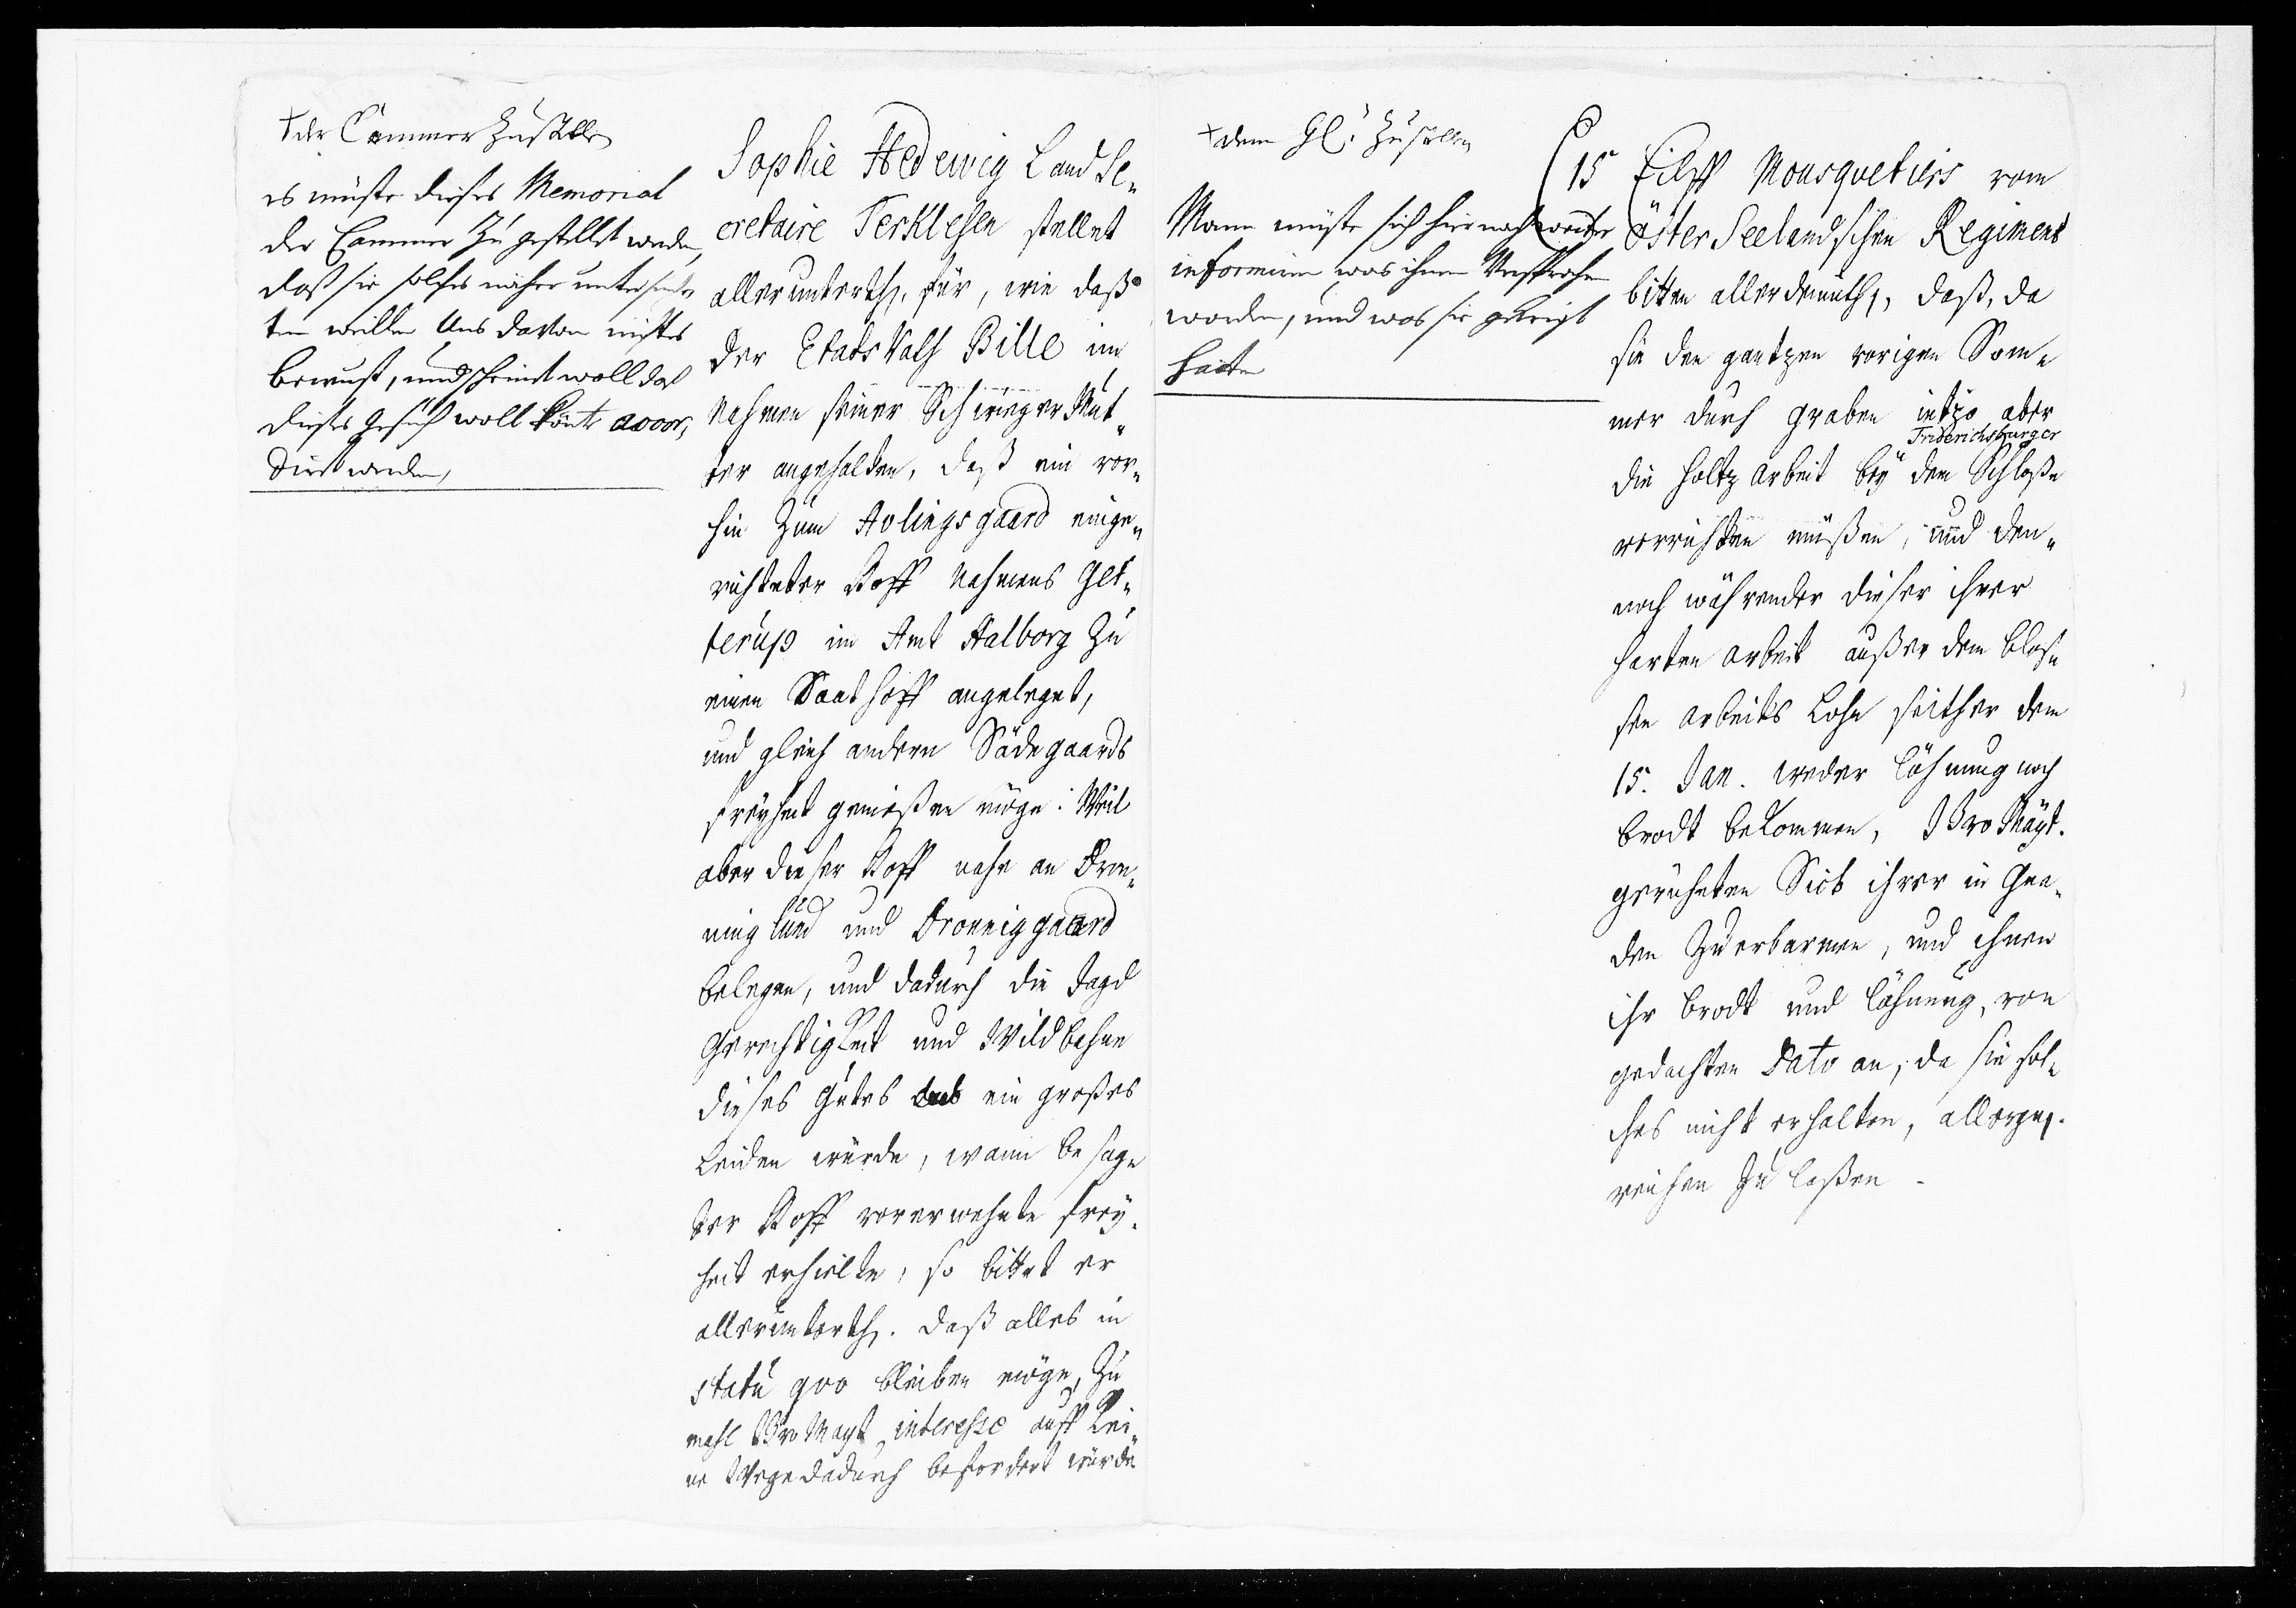 + der Cammer Zustellen
es müste dieses Memorial
der Cammer Zu gestellet werden,
daß sie solches näher untersuch-
ten weillen Uns davon nichtes
bewust, und scheinet woll daß
dieses gesuch woll könte accor,
dirt werden,
Sophie Hedewig Land Se„
cretaire Terklesen stellet
allerunterth. für, wie daß
der Etats Rath Bille im
Nahmen seiner Schwieger Mut„
ter angehalten, daß ein vor„
hin Zum Avlingsgaard einge„
richteter Hoff Nahmens Get„
terup im Amt Aalborg Zu
einen Saathoff angeleget,
und gleich andern Sädegaards
freyheit genießen möge: Weil
aber dieser Hoff nahe an Dron„
ninglund und Dronniggaard
belegen, und dadurch die Jagd
Gerechtigkeit und Wildbahne
dieses Gutes ein großes
Leiden würde, wann besag„
ter Hoff vorerwehnte frey„
heit erhielte, so bittet er
allerunterth. daß alles in
statu quo bleiben möge, Zu
mahl Ewr Mayt interesse auff kei„
ne Wege dadurch befordert würde
+ dem Gl: Zustellen
Mann müste sich hiernach weiter
informiren was ihnen Versprochen
worden, und was sie gekrigt
hätten
15 Eilff Mousquetiers vom
öster Seelandschen Regiment
bitten allerdemüth, daß, da
sie den gantzen vorigen Som„
mer durch graben intzo aber
Friderichsburger
die Holtz arbeit bey dem Schloße
verrichten müßen, und den„
noch währender dieser ihrer
harten arbeit außer dem bloß„
sen arbeits Lohn seither dem
15. Jan. weder Löhnung noch
brodt bekommen, Ewr Mayt.
geruheten Sich ihrer in Gna„
den Zu erbarmen, und ihnen
ihr brodt und Löhnung, von
gedachten Dato an, da sie sol„
ches nicht erhalten, allergn.
reichen Zu laßen -